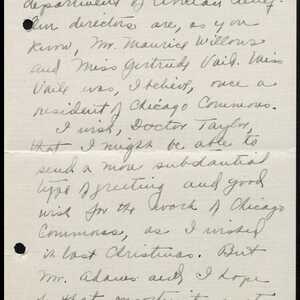 department of civilian relief.
Our directors are, as you
know, Mr. Maurice Willows
and Miss Gertrude Vaile. Miss
Vaile was, I believe, once a
resident of Chicago Commons.
I wish, Doctor Taylor,
that I might be able to
send a more substantial
type of greeting and good
wish for the work of Chicago
Commons, as I wished
last Christmas. But
Mr. Adams and I hope
that